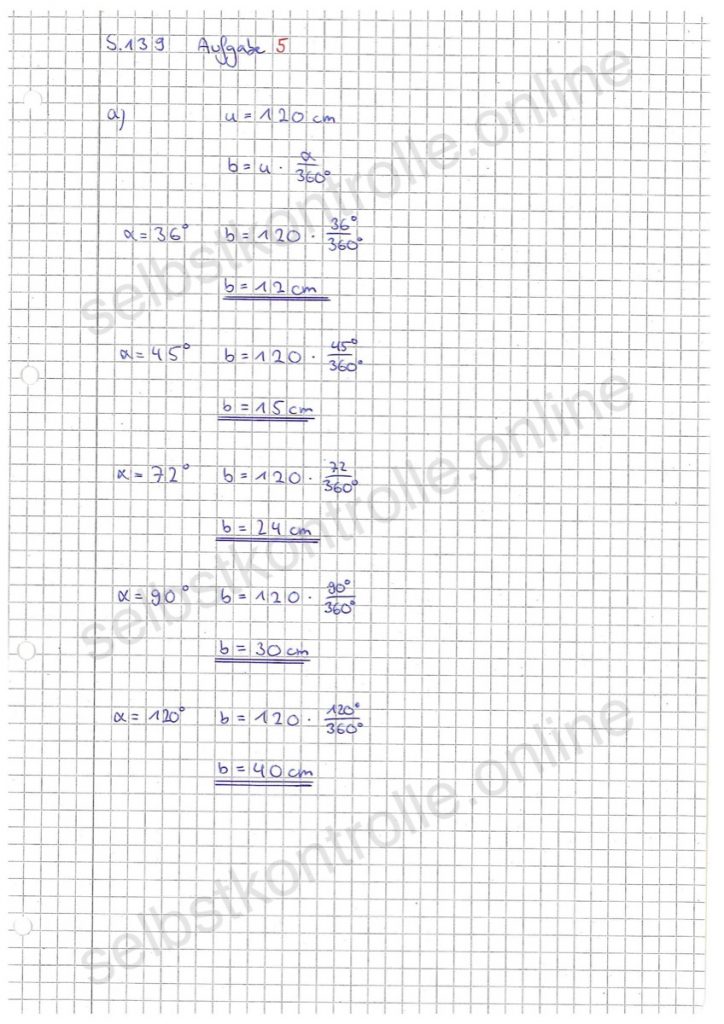 S.139 Aufgabe 5
a) u = 120 cm
b = u · α/360°
α = 36° b = 120 · 36°/360°
b = 12 cm
α = 45° b = 120 · 45°/360°
b = 15 cm
α = 72° b = 120 · 72/360°
b = 24 cm
α = 90° b = 120 · 90°/360°
b = 30 cm
α = 120° b = 120 · 120°/360°
b = 40 cm
selbstkontrolle.online
selbstkontrolle.online
selbstkontrolle.online